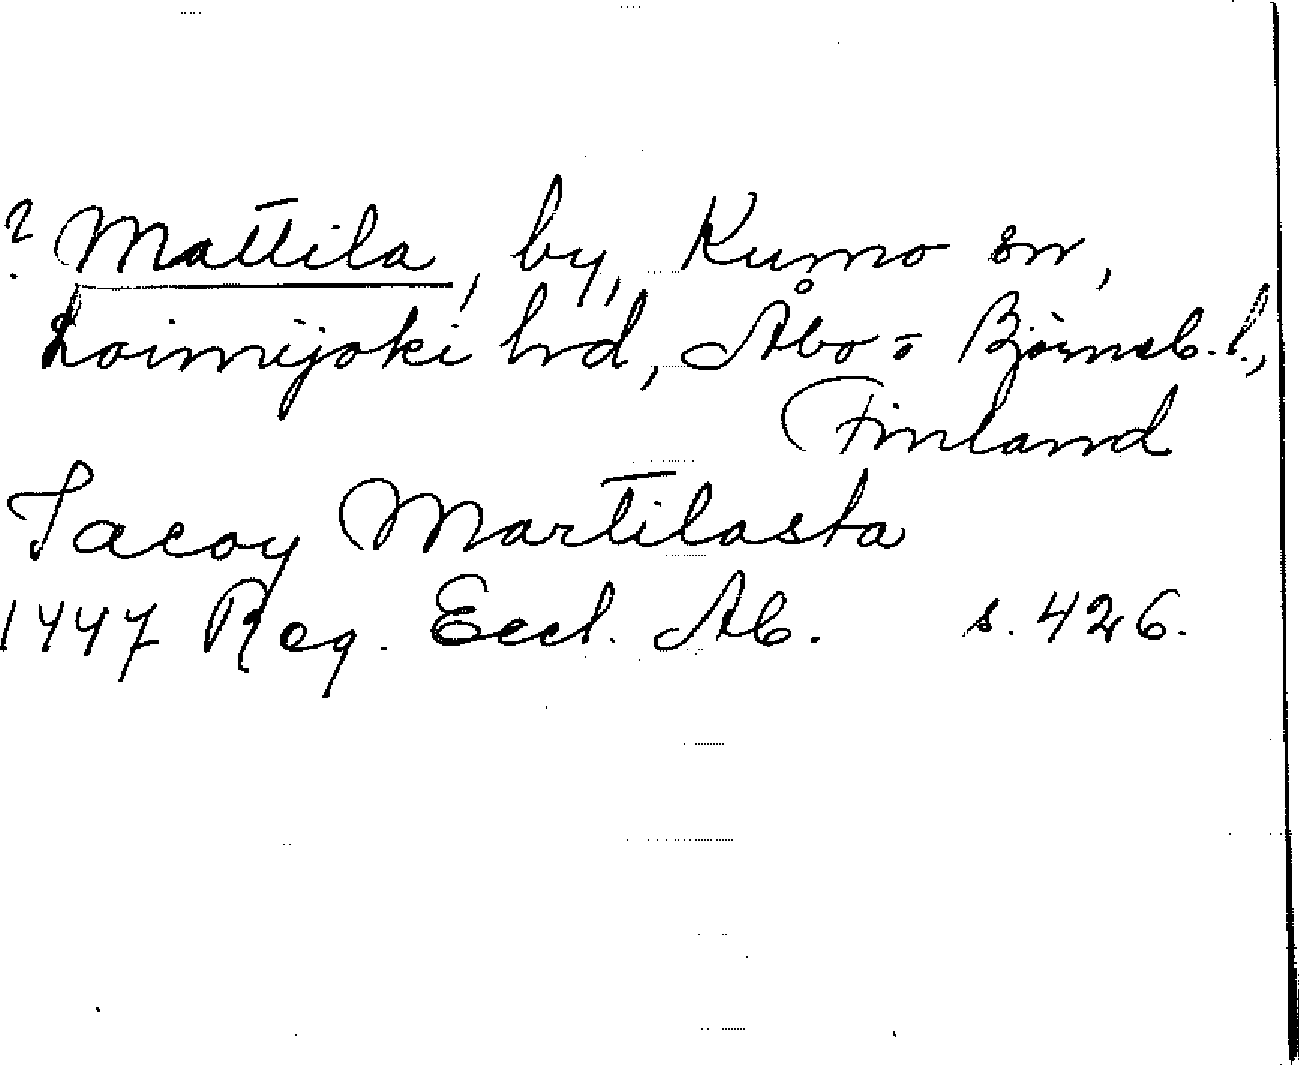 ? Mattila, by, Kumo sn,
Loimijoki hrd, Åbo o Björneb. l.,
Finland
Jacoy Martilasta
1447 Reg. Eccl. Ab. s. 426.